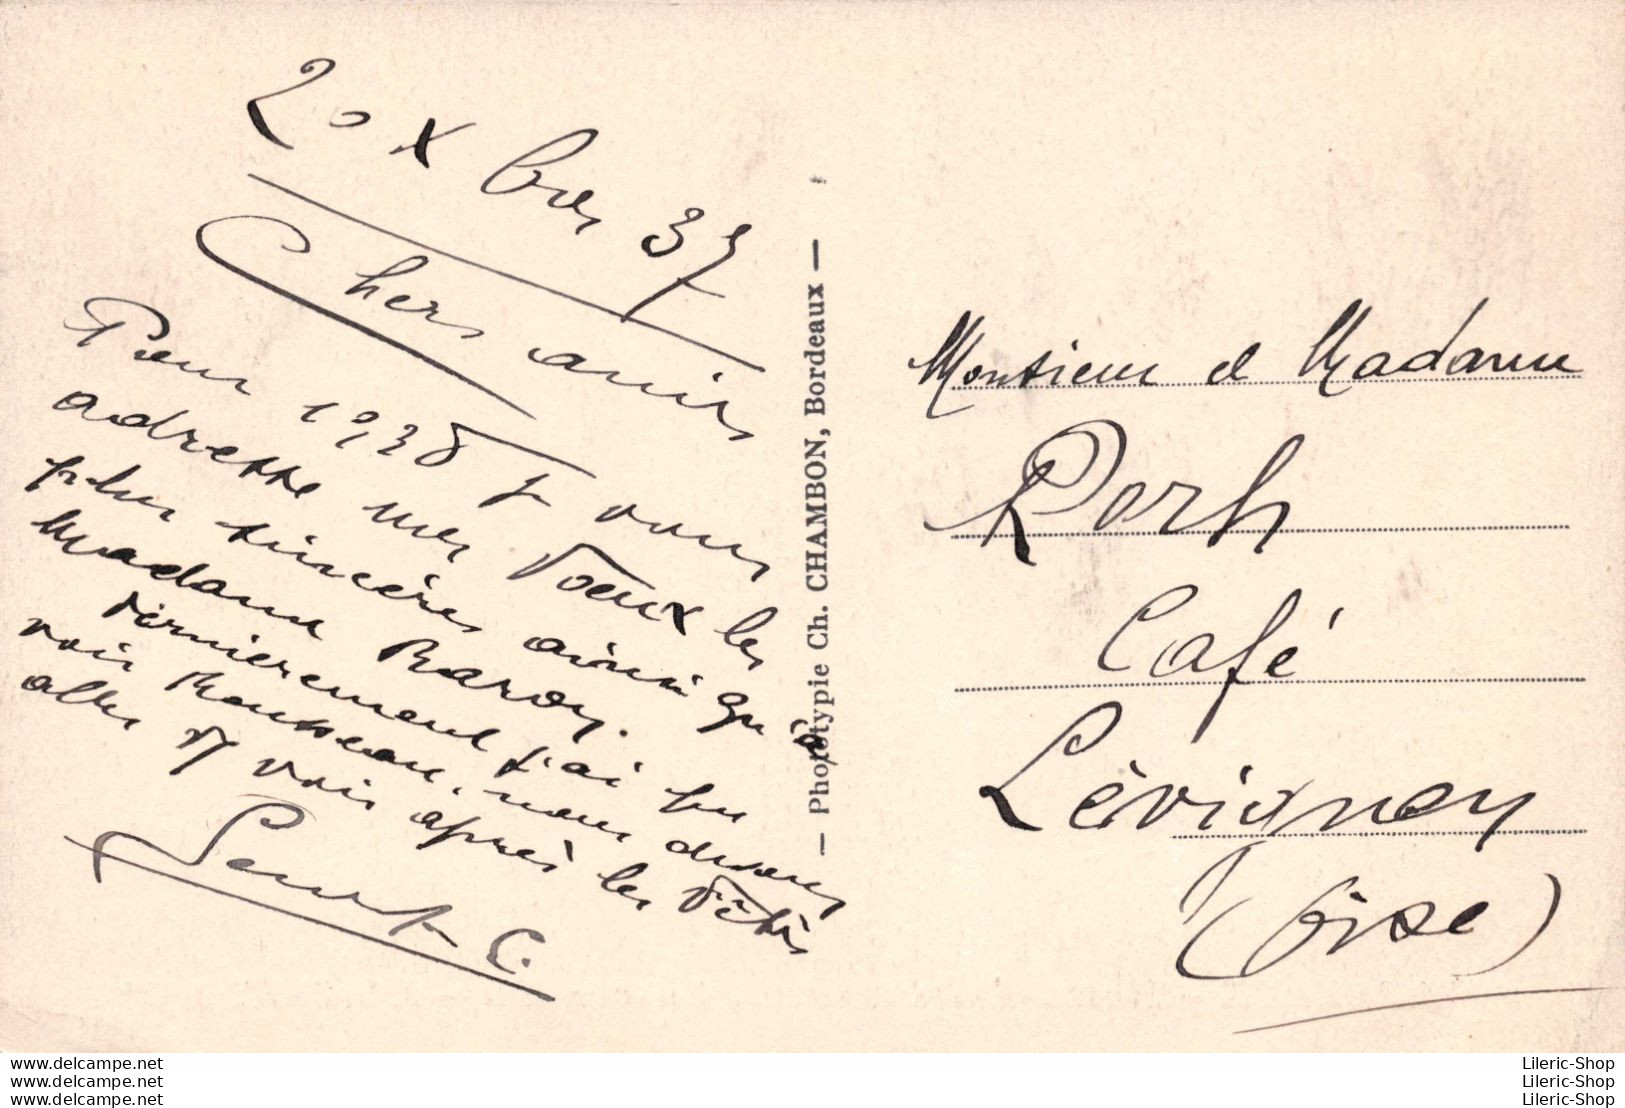 20 Xbre 37
Chers amis
Pour 1938 je vous
adresse mes voeux les
plus sincères ainsi qu'à
Madame Baron.
Dernierement j'ai pu
voir Rousseau, nous devons
aller y voir après les fêtes
C.
— Phototypie Ch. CHAMBON, Bordeaux —
Monsieur et Madame
Café
Lévignen
(Oise)
delcampe.net
delcampe.net
delcampe.net
Lileric-Shop
Lileric-Shop
Lileric-Shop